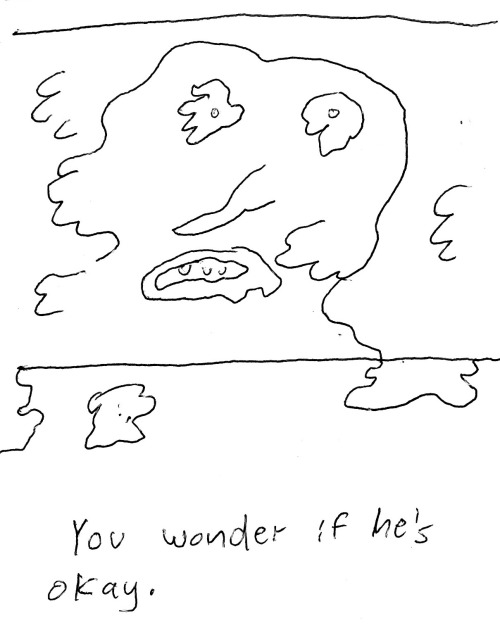 You wonder if he's
okay.